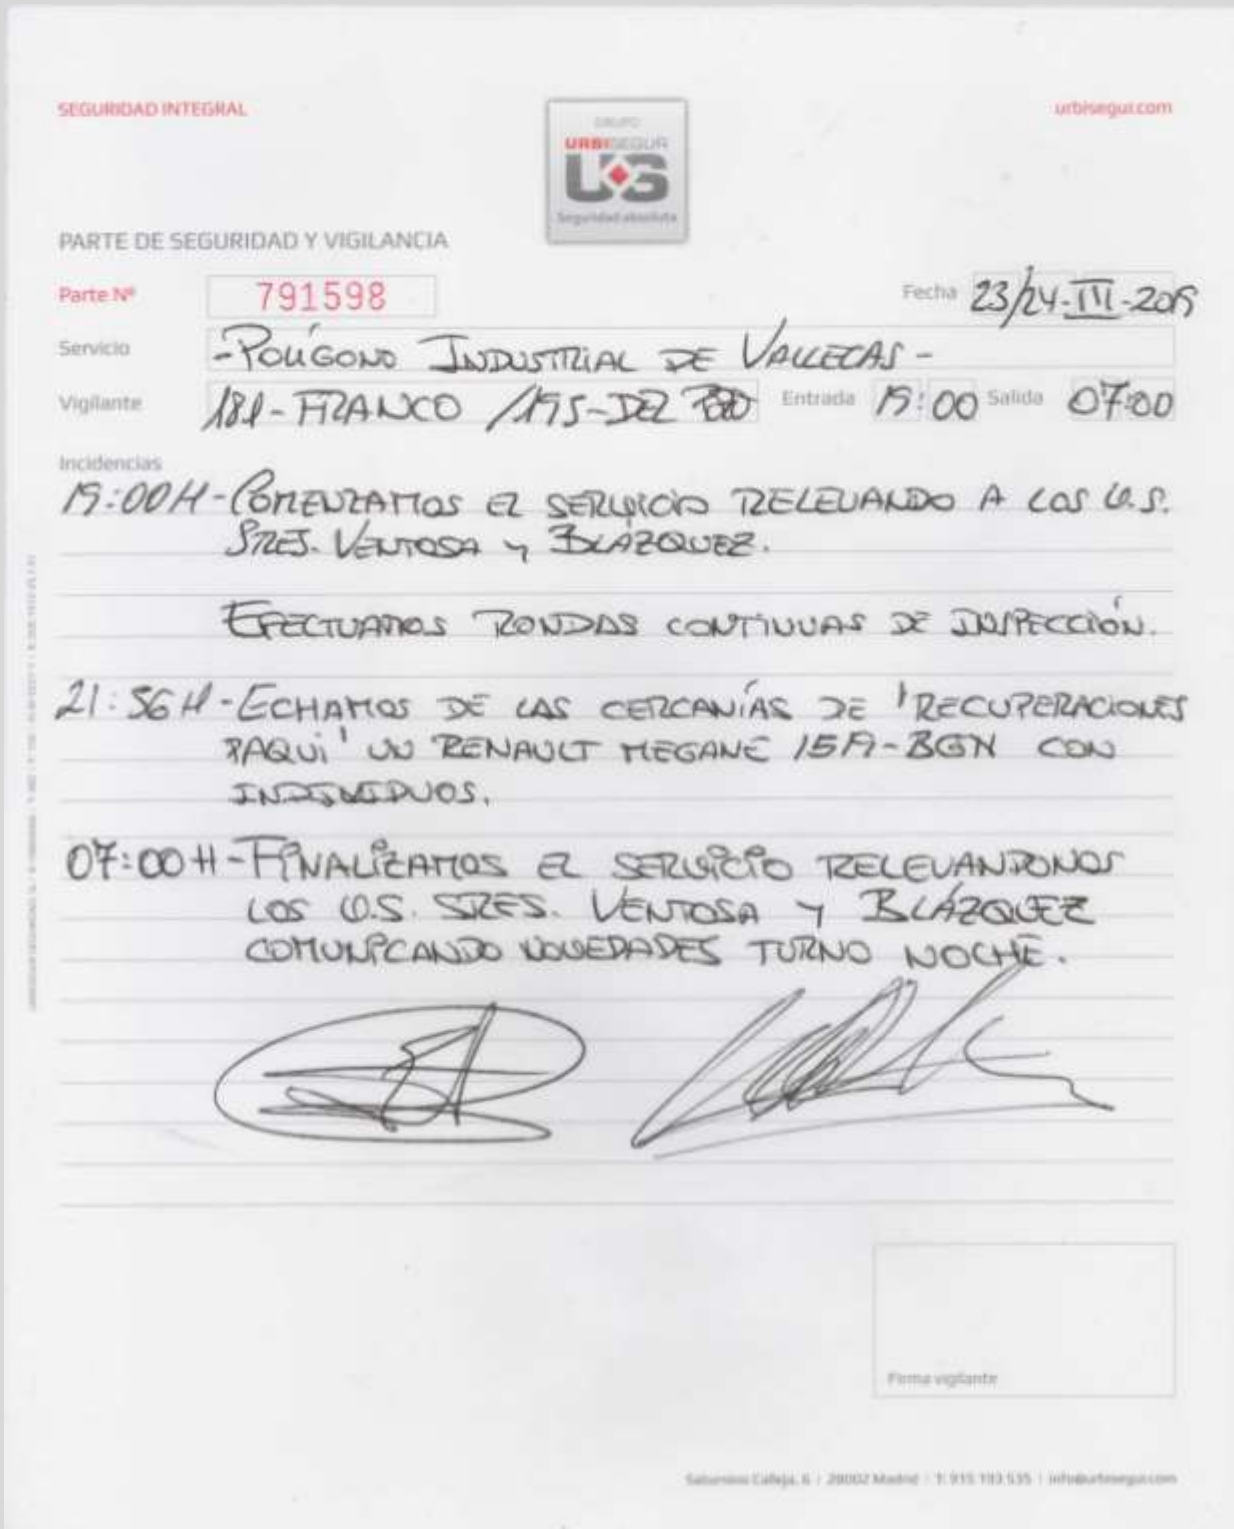 SEGURIDAD INTEGRAL
urbisegur.com
GRUPO
URBISEGUR
US
Seguridad absoluta
PARTE DE SEGURIDAD Y VIGILANCIA
Parte Nº 791598
Fecha 23/24-III-2019
Servicio -POLÍGONO INDUSTRIAL DE VALLECAS-
Vigilante 181-FRANCO /195-DEL POZO Entrada 19:00 Salida 07:00
Incidencias
19:00H-COMENZAMOS EL SERVICIO RELEVANDO A LOS V.S.
SRES. VENTOSA Y BLÁZQUEZ.
EFECTUAMOS RONDAS CONTINUAS DE INSPECCIÓN.
21:56H-ECHAMOS DE LAS CERCANÍAS DE 'RECUPERACIONES
PAQUI' UN RENAULT MEGANE 1519-BGN CON
INDIVIDUOS.
07:00H-FINALIZAMOS EL SERVICIO RELEVANDONOS
LOS V.S. SRES. VENTOSA Y BLÁZQUEZ
COMUNICANDO NOVEDADES TURNO NOCHE.
Firma vigilante
Saturnino Calleja, 6 | 28002 Madrid | T: 915 193 535 | info@urbisegur.com